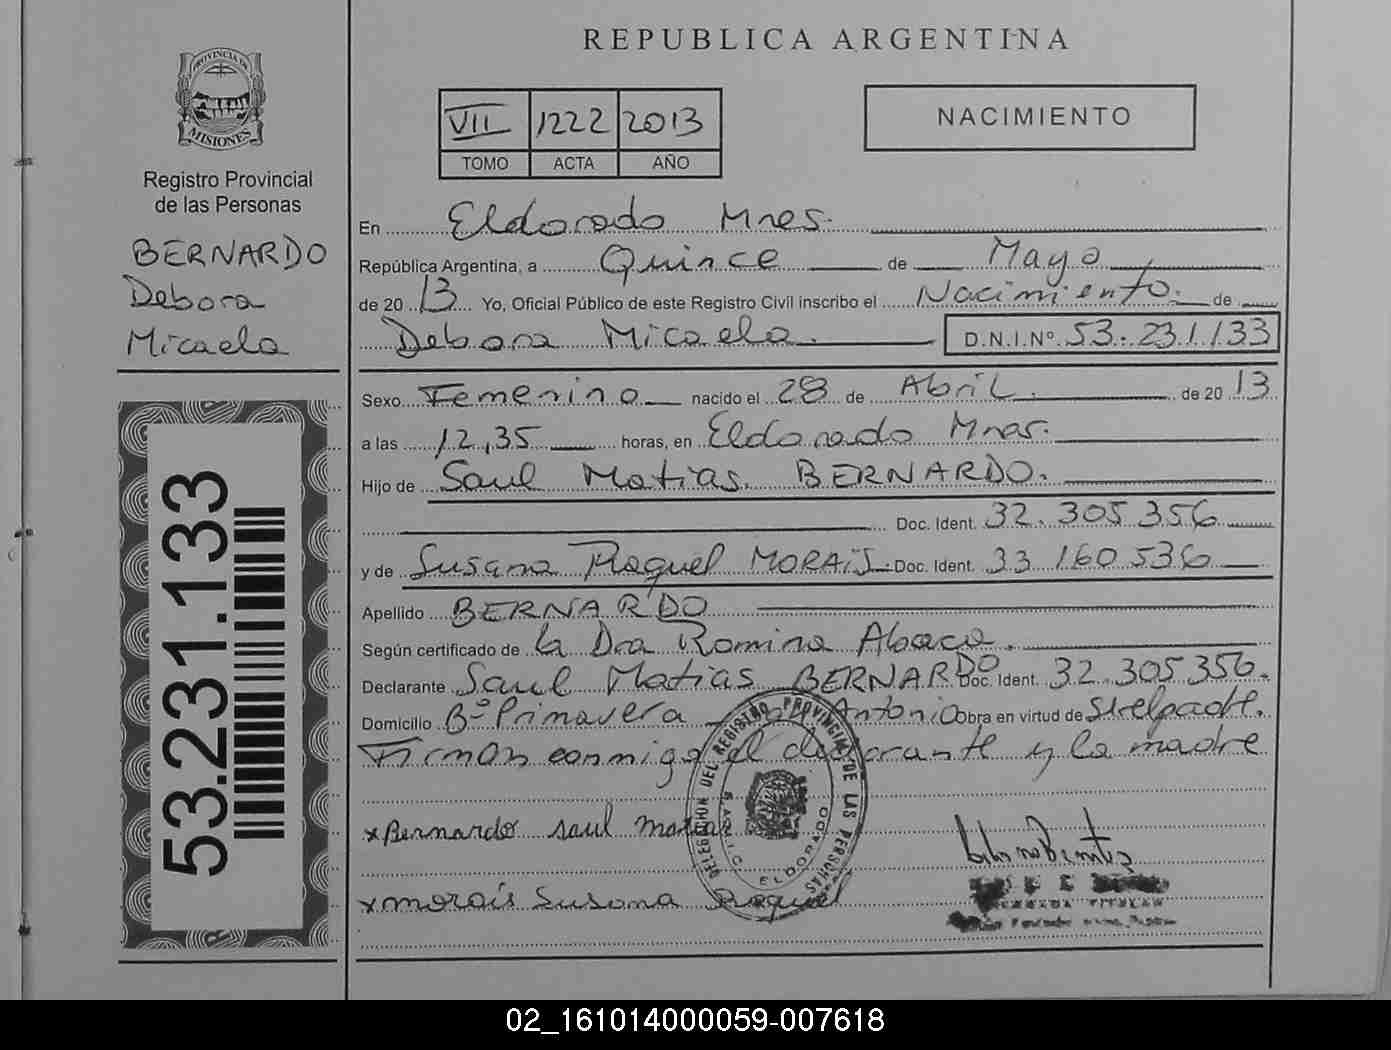 REPUBLICA ARGENTINA
PROVINCIA DE
MISIONES
Registro Provincial
de las Personas
BERNARDO
Debora
Micaela
53.231.133
VII 1222 2013
TOMO ACTA AÑO
NACIMIENTO
En Eldorado Mnes.
República Argentina, a Quince de Mayo
de 2013 Yo, Oficial Público de este Registro Civil inscribo el Nacimiento. de
Debora Micaela. D.N.I.Nº 53.231.133
Sexo Femenino nacido el 28 de Abril. de 2013
a las 12,35 horas, en Eldorado Mnes.
Hijo de Saul Matias BERNARDO.
Doc. Ident. 32.305.356
y de Susana Raquel MORAIS. Doc. Ident. 33 160 536
Apellido BERNARDO
Según certificado de la Dra Romina Abaca.
Declarante Saul Matias BERNARDO Doc. Ident. 32.305.356.
Domicilio Bº Primavera Antonio Obra en virtud de
Firman conmigo el declarante y la madre
x Bernardo saul matias
x morais Susana Raquel
DELEGACION DEL REGISTRO PROVINCIAL DE LAS PERSONAS
ELDORADO
TITULAR
02_161014000059-007618